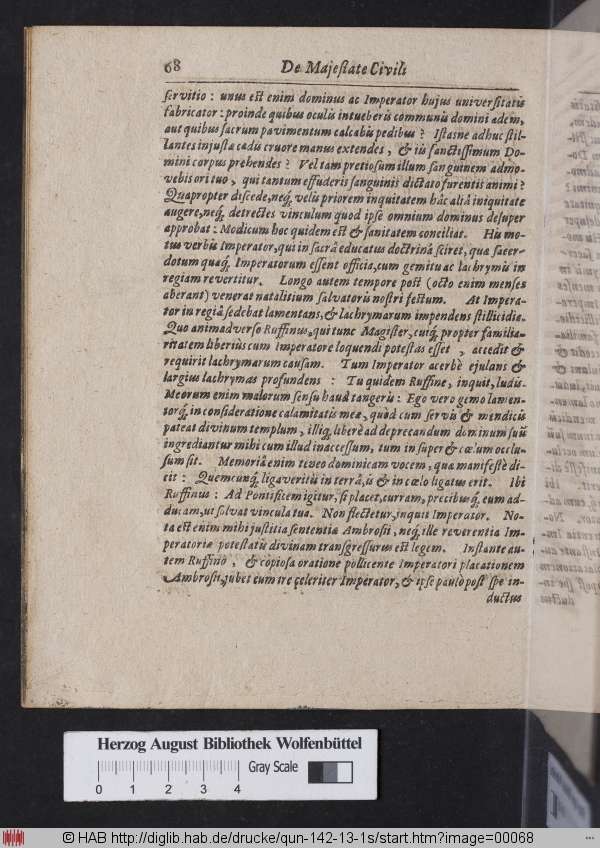 68 De Majestate Civili
servitio : unus est enim dominus ac Imperator hujus universitatis
fabricator : proinde quibus oculis intueberis communis domini ædem,
aut quibus sacrum pavimentum calcabis pedibus ? Istasne adhuc stil-
lantes injustæ cædis cruore manus extendes, & iis sanctissimum Do-
mini corpus prehendes ? Vel tam pretiosum illum sanguinem admo-
vebis ori tuo, qui tantum effuderis sanguinis dictato furentis animi ?
Quapropter discede, neq; velis priorem iniquitatem hâc aliâ iniquitate
augere, neq; detrectes vinculum quod ipse omnium dominus desuper
approbat : Modicum hoc quidem est & sanitatem conciliat. His mo-
tus verbis Imperator, qui in sacrâ educatus doctrinâ sciret, quæ sacer-
dotum quæq; Imperatorum essent officia, cum gemitu ac lachrymis in
regiam revertitur. Longo autem tempore post (octo enim menses
aberant) venerat natalitium salvatoris nostri festum. At Impera-
tor in regiâ sedebat lamentans, & lachrymarum impendens stillicidia.
Quo animadverso Ruffinus, qui tunc Magister, cuiq; propter familia-
ritatem liberius cum Imperatore loquendi potestas esset, accedit &
requirit lachrymarum causam. Tum Imperator acerbè ejulans &
largius lachrymas profundens : Tu quidem Ruffine, inquit, ludis.
Meorum enim malorum sensu haud tangeris : Ego vero gemo lamen-
torq; in consideratione calamitatis meæ, quòd cum servis & mendicis
pateat divinum templum, illiq; liberè ad deprecandum dominum suũ
ingrediantur mihi cum illud inaccessum, tum insuper & cœlum occlu-
sum sit. Memoriâ enim teneo dominicam vocem, quæ manifestè di-
cit : Quemcunq; ligaveritis in terrâ, is & in cœlo ligatus erit. Ibi
Ruffinus : Ad Pontificem igitur, si placet, curram, precibusq; eum ad-
ducam, ut solvat vincula tua. Non flectetur, inquit Imperator. No-
ta est enim mihi justitia sententiæ Ambrosii, neq; ille reverentia Im-
peratoriæ potestatis divinam transgressurus est legem. Instante au-
tem Ruffino, & copiosa oratione pollicente Imperatori placationem
Ambrosii, jubet eum ire celeriter Imperator, & ipse paulò post spe in-
ductus
Herzog August Bibliothek Wolfenbüttel
0 1 2 3 4 Gray Scale
© HAB http://diglib.hab.de/drucke/qun-142-13-1s/start.htm?image=00068